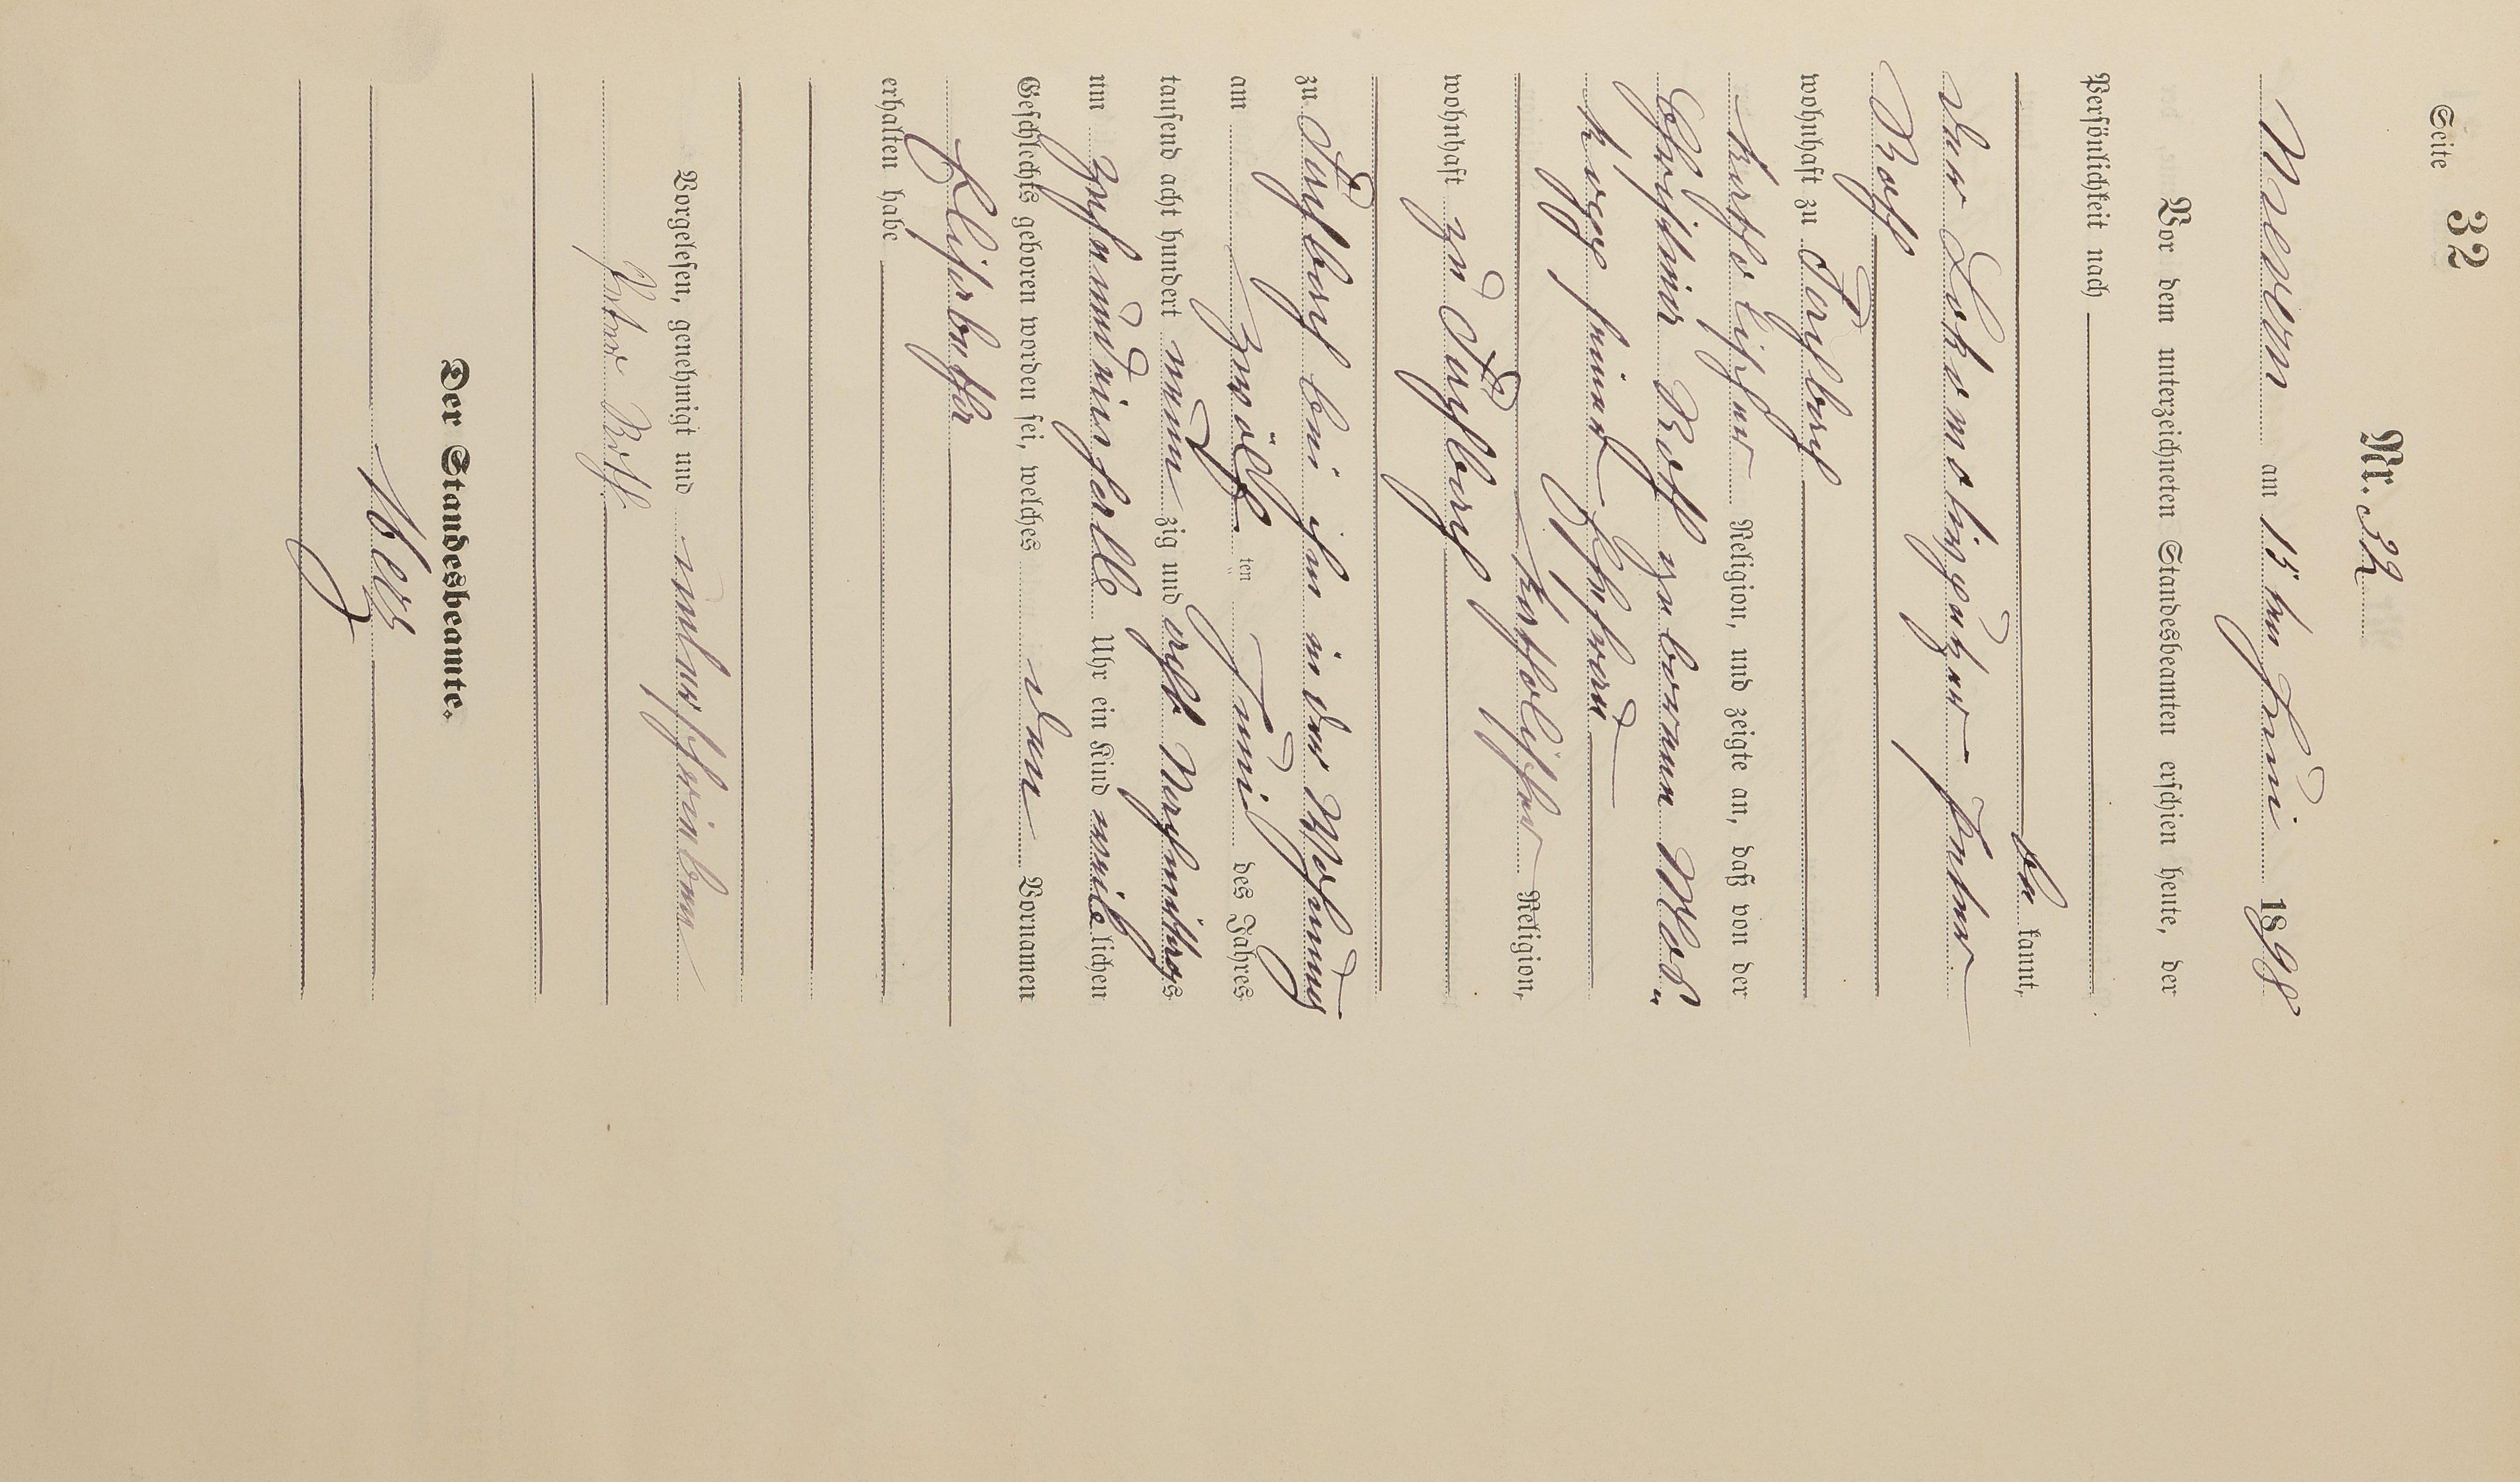 Seite 32
Nr. 32
am 15 ten Juni 1898
Vor dem unterzeichneten Standesbeamten erschien heute, der
Persönlichkeit nach
be kannt,
der Peter
Roth
wohnhaft zu
katholischer Religion, und zeigte an, daß von der
Christine Roth geborenen
seiner Ehefrau
katholischer Religion,
wohnhaft zu
zu bei ihm in der Wohnung
am zwölf ten Juni des Jahres
tausend acht hundert neun zig und acht Nachmittags
um zehnundeinhalb Uhr ein Kind weib lichen
Geschlechts geboren worden sei, welches den Vornamen
Elisabetha
erhalten habe
Vorgelesen, genehmigt und unterschrieben
Peter Roth
Der Standesbeamte.